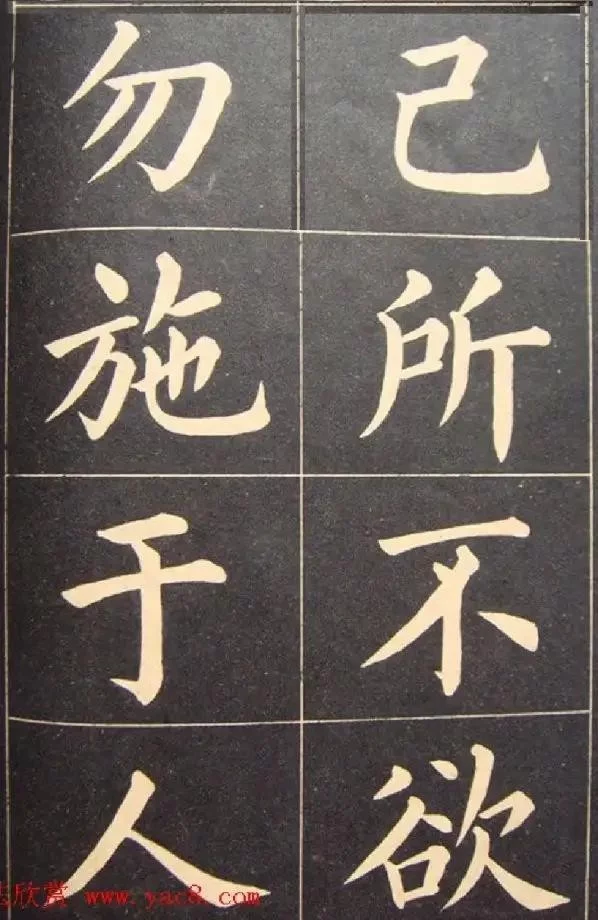 己所不欲
勿施于人
欣赏 www.yac8.com